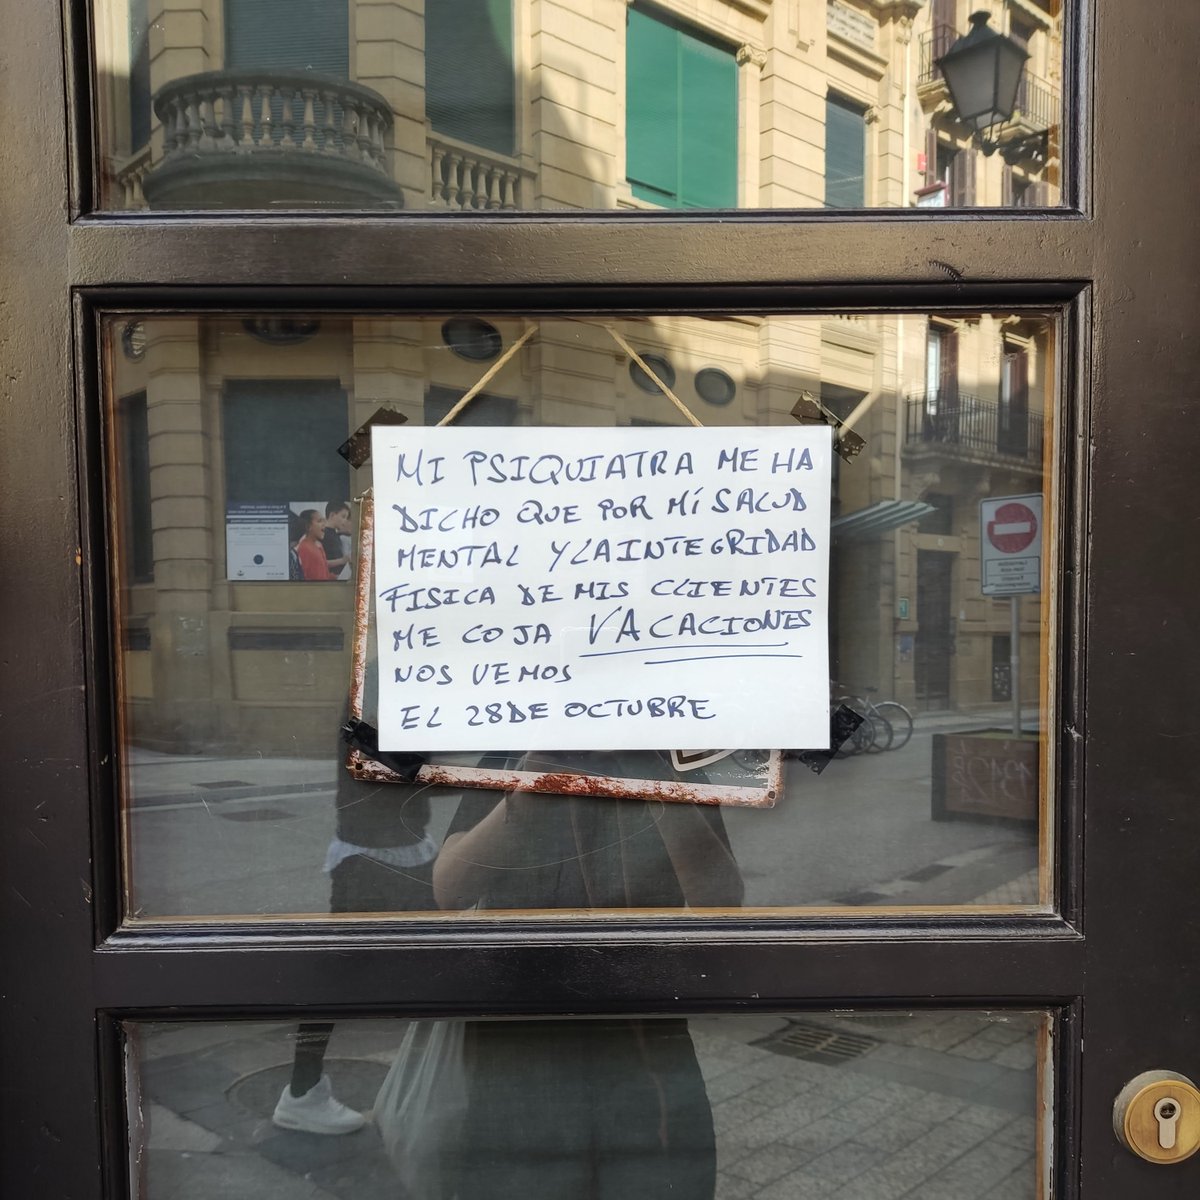 MI PSIQUIATRA ME HA
DICHO QUE POR MÍ SALUD
MENTAL Y LA INTEGRIDAD
FISICA DE MIS CLIENTES
ME COJA VACACIONES
NOS VEMOS
EL 28 DE OCTUBRE